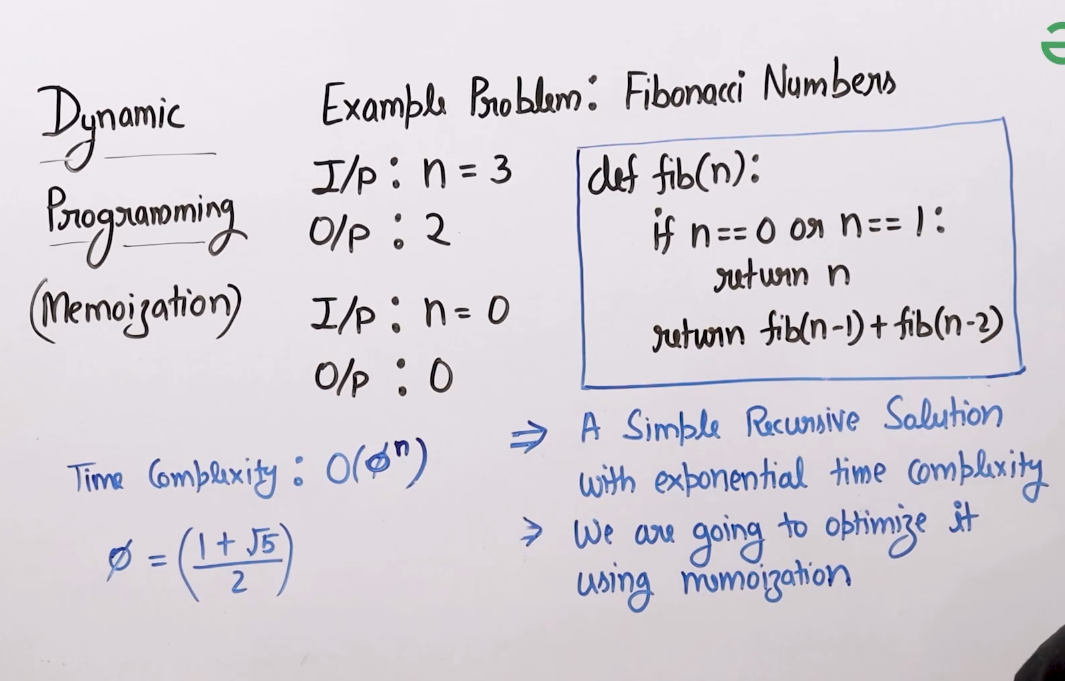 Dynamic
Programming
(Memoization)
Example Problem: Fibonacci Numbers
I/p : n = 3
O/p : 2
I/p : n = 0
O/p : 0
def fib(n):
if n==0 or n==1:
return n
return fib(n-1)+fib(n-2)
Time Complexity : O(ϕⁿ)
ϕ = ((1+√5)/2)
⇒ A Simple Recursive Solution
with exponential time complexity
⇒ We are going to optimize it
using memoization